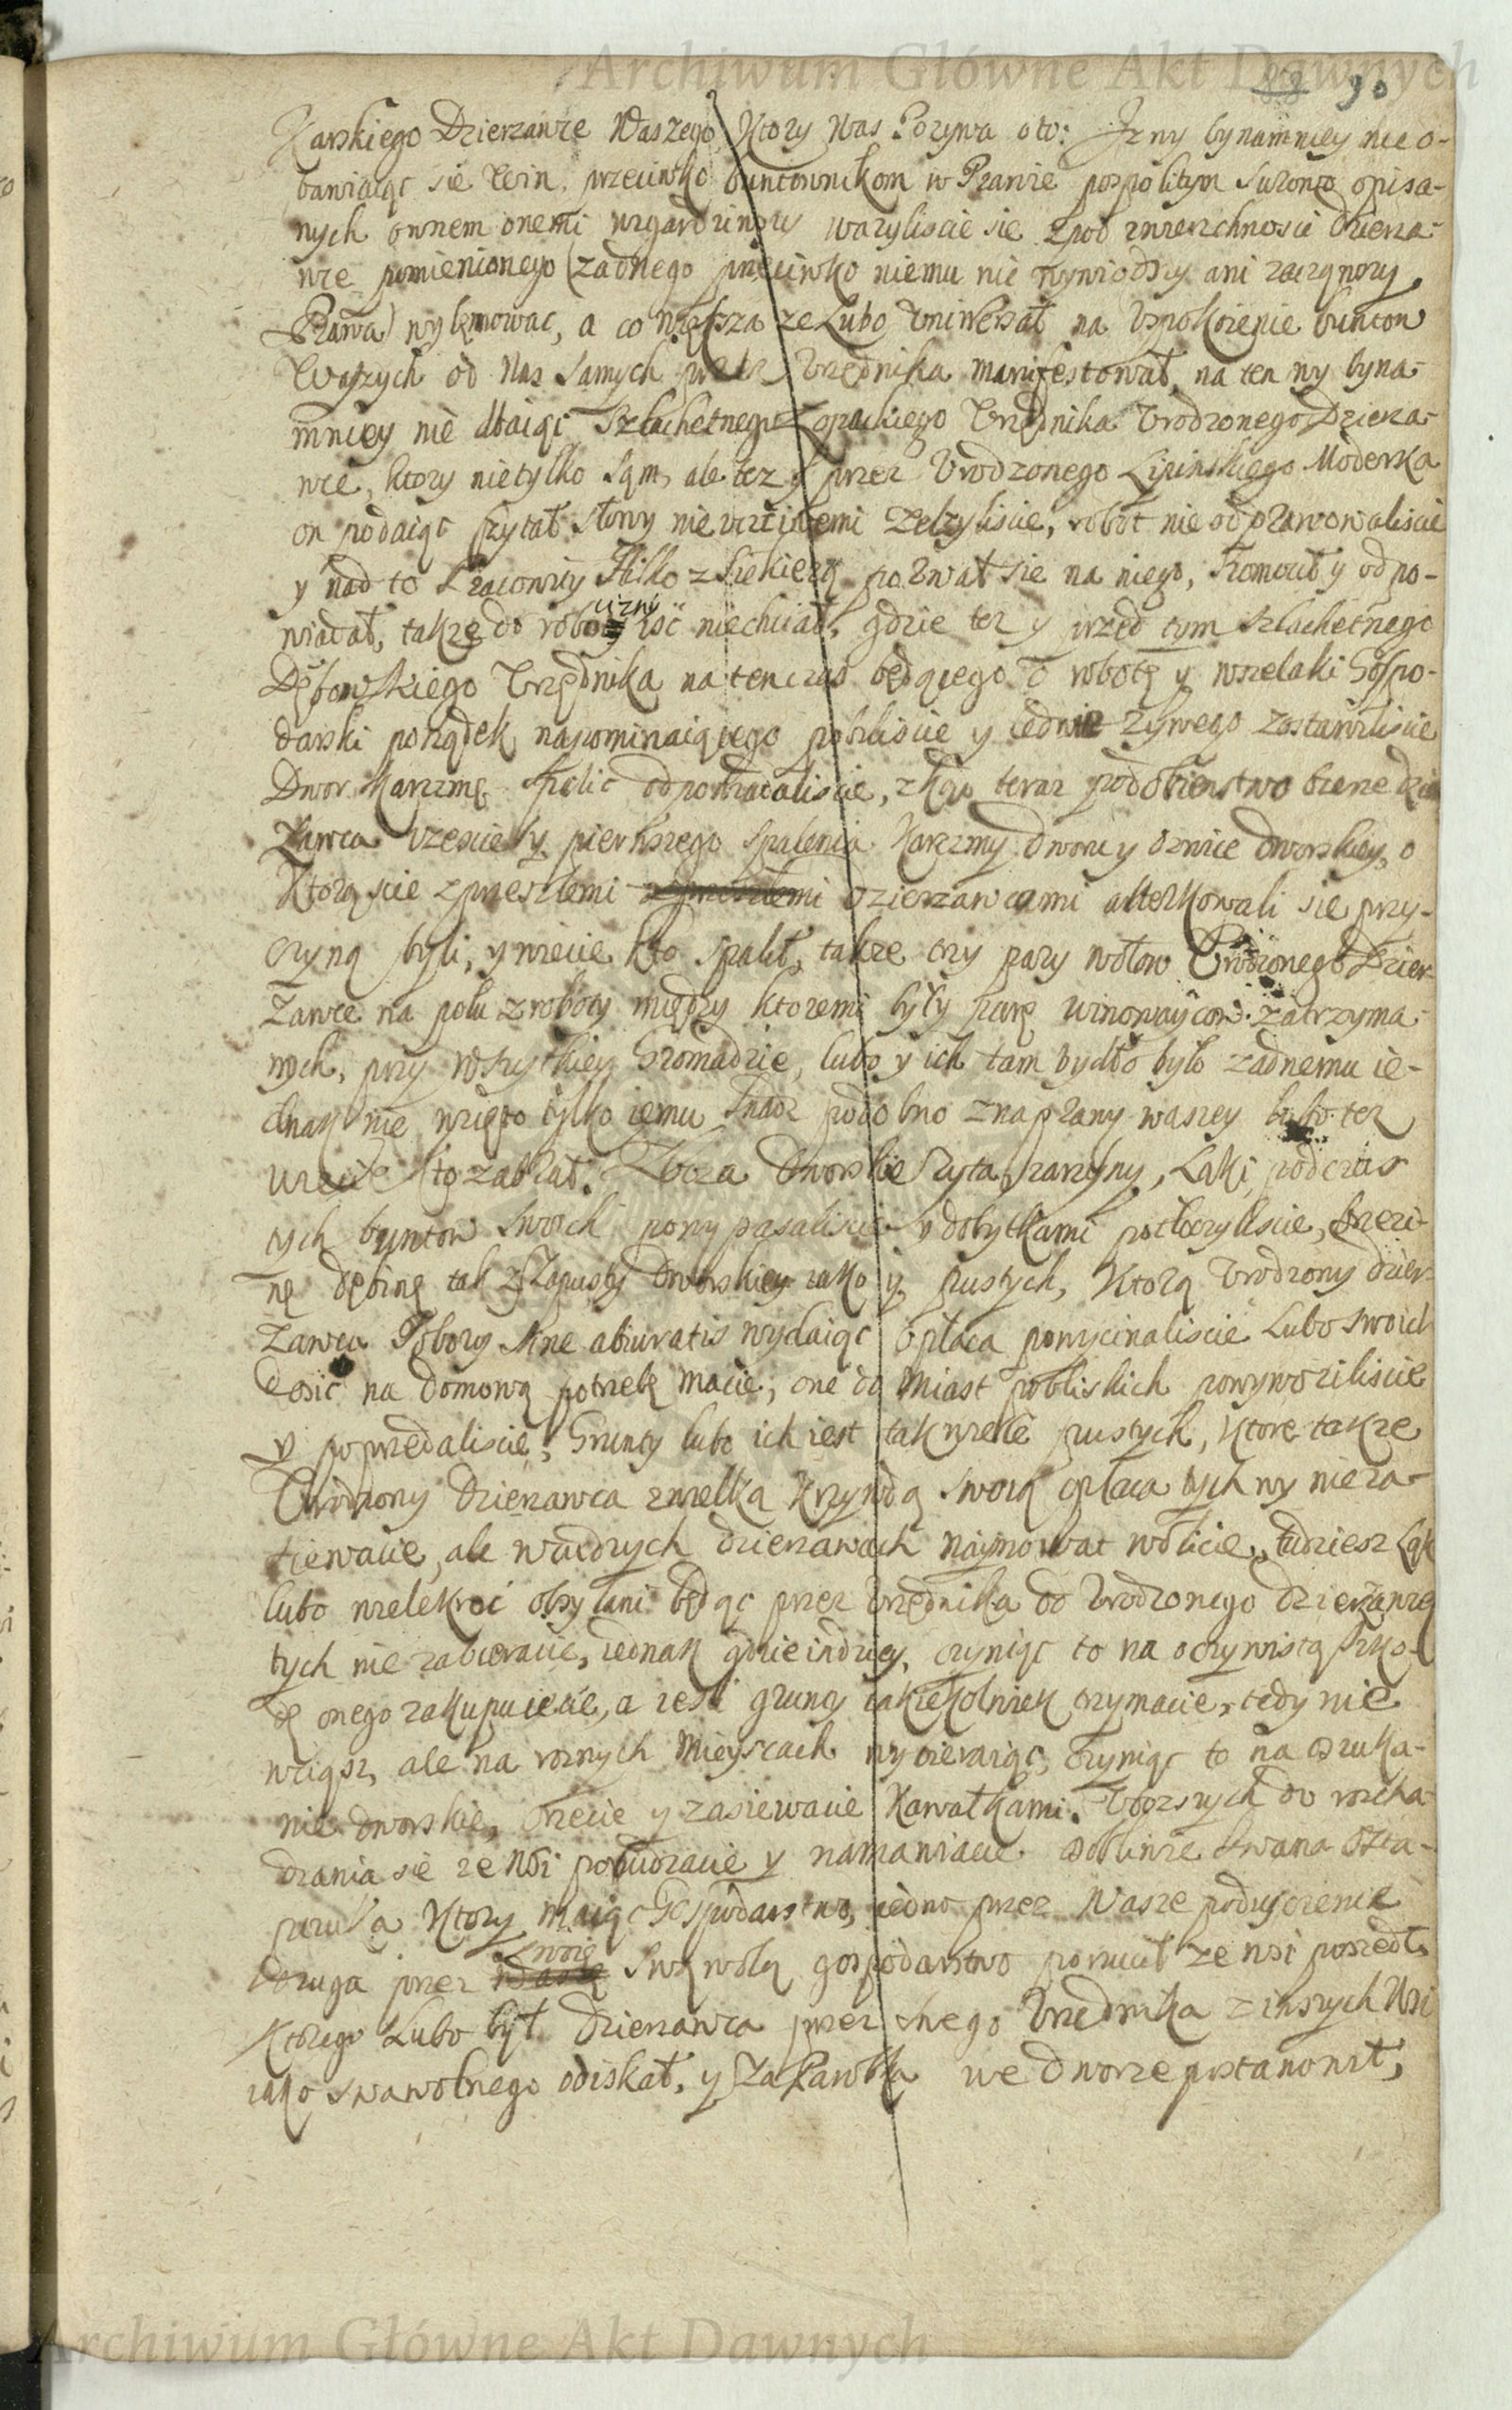 Archiwum Główne Akt Dawnych
90
Karskiego Dzierzawce Waszego, Ktory Was Pozywa oto: Iz wy bynamniey nie o-
bawiaiąc sie Win, przeciwko buntownikom w Prawie pospolitym surowo opisa-
nych owszem onemi wzgardziwszy wazyliscie sie zpod zwierzchnosci dzierza-
wce pomienionego (zadnego przeciwko niemu nie wywiodszy ani zacząwszy
Prawa) wyłęmowac, a co większa ze Lubo Vniwersał na Vspokoienie buntow
Waszych od Nas samych przez Vrzędnika manifestował, na ten wy byna-
mniey nie dbaiąc Szlachetnego Łopackiego Vrzędnika Vrodzonego Dzierza-
wce, ktory nietylko sąm, ale tez y przez Vrodzonego Lipinskiego Moderka
on podaiąc czytał słowy nieuczciwemi zelzyliscie, robot nie odprawowaliscie
y nad to Pracowity Hilko z siekierą porwał sie na niego, sromocił y odpo-
wiadał, takze do robocizny iść niechciał, gdzie tez y przed tym szlachetnego
Dębowskiego Vrzędnika natenczas będącego o robotę y wszelaki Gospo-
darski porządek napominaiącego pobiliscie y ledwie zywego zostawiliscie
Dwor Karczmę spalic odpowiadaliscie, zkąd teraz podobienstwo bierze dzier
zawca zescie y pierwszego spalenia Karczmy Dworu y Dziwie dworskiey, o
Ktorą scie zprzeszłemi dzierzawcami alterkowali sie przy-
czyną byli, y wiecie kto spalił, takze trzy pary wołow Vrodzonego Dzier-
zawce na polu z roboty między ktoremi były parę winowaycow zatrzyma-
nych, przy wszystkiey Gromadzie, lubo y ich tam bydło było zadnemu ie-
dnak nie wzięto tylko iemu snadz podobno z naprawy waszey bo tez
wiecie kto zabrał. Zboza dworskie Zyta, Iarzyny, Łąki, podczas
tych buntow swoich powypasaliscie y dobytkami potłoczyliscie, brzezi-
nę dębinę tak z Zapusty dworskiey iako y pustych, Ktorą Vrodzony dzier-
zawca Pobory sine abiuratis wydaiąc opłaca powycinaliscie Lubo swoich
dosic na domową potrzebę macie, one do Miast pobliskich powywoziliscie
y poprzedaliscie; Grunty lubo ich iest tak wiele pustych, ktore takze
Vrodzony dzierzawca z wielką krzywdą swoią opłaca tych wy nieza-
siewacie, ale w cudzych dzierzawach naymowac wolicie, tudziesz Łąk
lubo wielekroc obsyłani będąc przez Vrzędnika do Vrodzonego dzierzawcę
tych nie zabieracie, iednak gdzieindziey, czyniąc to na oczywistą szko-
dę onego zakupuiecie, a iesli grunty iakiekolwiek trzymacie, tedy nie
wciąsz, ale na roznych Mieyscach wybieraiąc, czyniąc to na oszuka-
nie dworskie, orzecie y zasiewacie Kawałkami. Vbozszych do rozcha-
dzania sie ze Wsi pobudzacie y namawiacie osobliwie Iwana Szta-
Ktory maiąc Gospodarstwo, iedno przez Wasze poduszczenie
Druga przez swoię swą wolą gospodarstwo porzucił ze wsi poszedł,
Ktorego Lubo był dzierzawca przez swego Vrzędnika z inszych Wsi
iako swawolnego odiskał, y Za Parobka we dworze postanowił,
Archiwum Główne Akt Dawnych